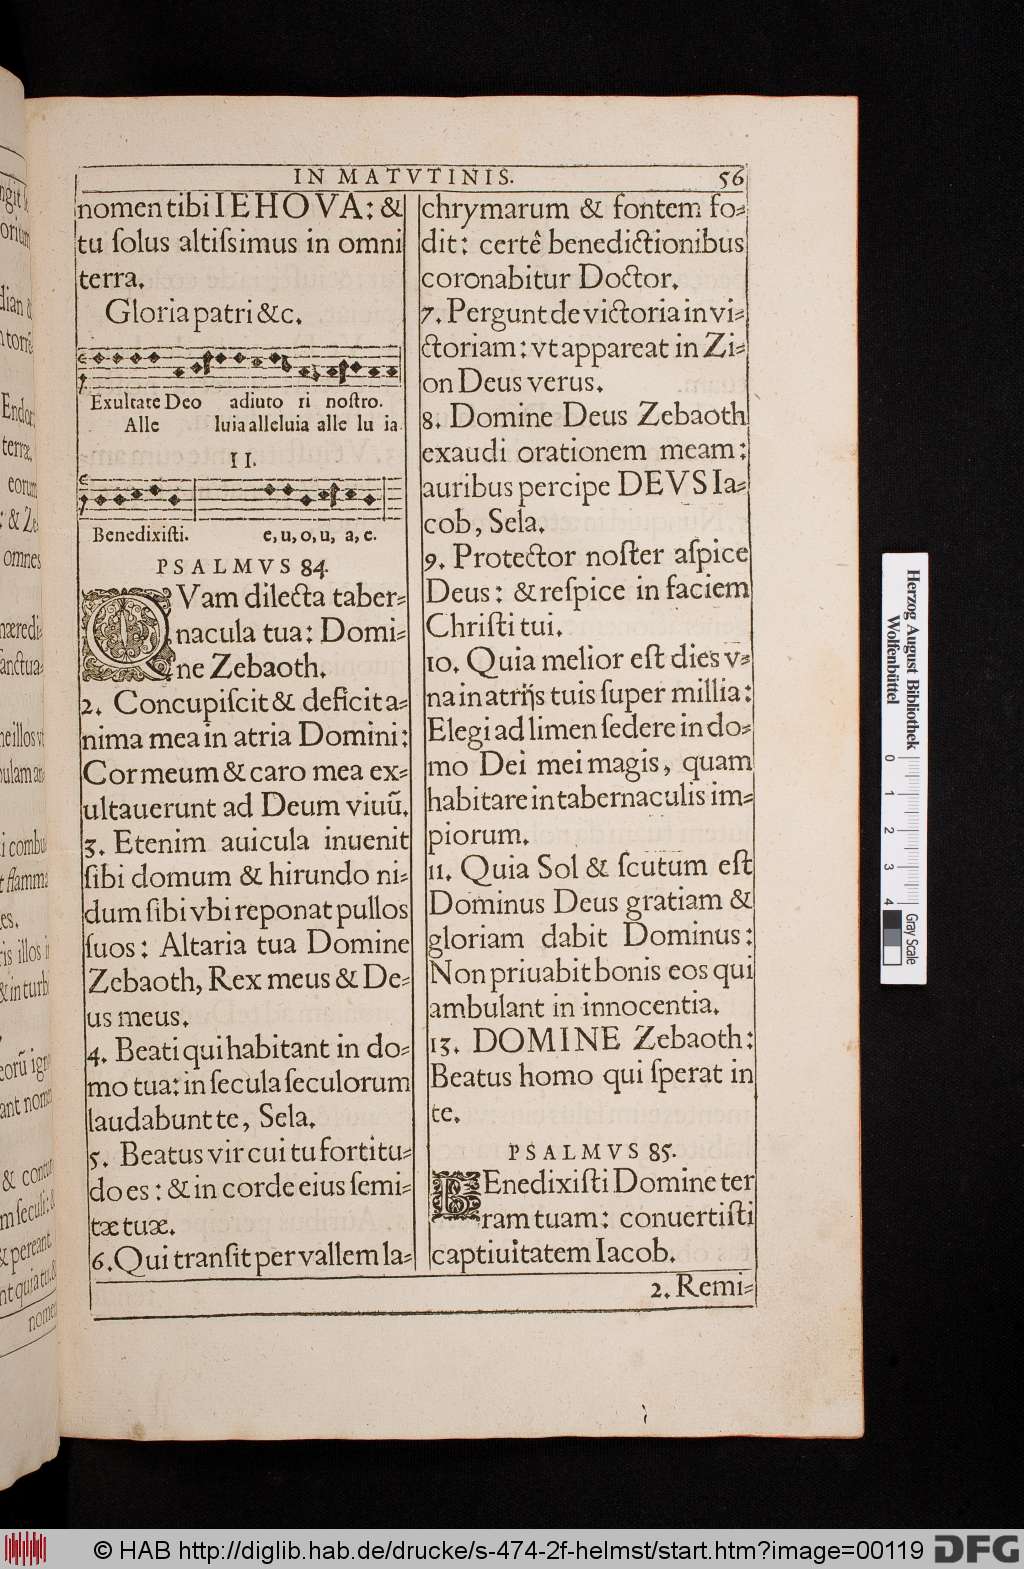 IN MATVTINIS. 56
nomen tibi IEHOVA: &
tu ſolus altiſsimus in omni
terra.
Gloria patri &c.
Exultate Deo adiuto ri noſtro.
Alle luia alleluia alle lu ia
II.
Benedixiſti. e, u, o, u, a, e.
PSALMVS 84.
QVam dilecta taber⸗
nacula tua: Domi⸗
ne Zebaoth.
2. Concupiſcit & deficit a⸗
nima mea in atria Domini:
Cor meum & caro mea ex⸗
ultauerunt ad Deum viuũ.
3. Etenim auicula inuenit
ſibi domum & hirundo ni⸗
dum ſibi vbi reponat pullos
ſuos: Altaria tua Domine
Zebaoth, Rex meus & De⸗
us meus.
4. Beati qui habitant in do⸗
mo tua: in ſecula ſeculorum
laudabunt te, Sela.
5. Beatus vir cui tu fortitu⸗
do es: & in corde eius ſemi⸗
tæ tuæ.
6. Qui tranſit per vallem la⸗
chrymarum & fontem fo⸗
dit: certê benedictionibus
coronabitur Doctor.
7. Pergunt de victoria in vi⸗
ctoriam: vt appareat in Zi⸗
on Deus verus.
8. Domine Deus Zebaoth
exaudi orationem meam:
auribus percipe DEVS Ia⸗
cob, Sela.
9. Protector noſter aſpice
Deus: & reſpice in faciem
Chriſti tui.
10. Quia melior eſt dies v⸗
na in atrijs tuis ſuper millia:
Elegi ad limen ſedere in do⸗
mo Dei mei magis, quam
habitare in tabernaculis im⸗
piorum.
11. Quia Sol & ſcutum eſt
Dominus Deus gratiam &
gloriam dabit Dominus:
Non priuabit bonis eos qui
ambulant in innocentia.
13. DOMINE Zebaoth:
Beatus homo qui ſperat in
te.
PSALMVS 85.
BEnedixiſti Domine ter
ram tuam: conuertiſti
captiuitatem Iacob.
2. Remi⸗
Herzog August Bibliothek
Wolfenbüttel
0 1 2 3 4
Gray Scale
© HAB http://diglib.hab.de/drucke/s-474-2f-helmst/start.htm?image=00119 DFG